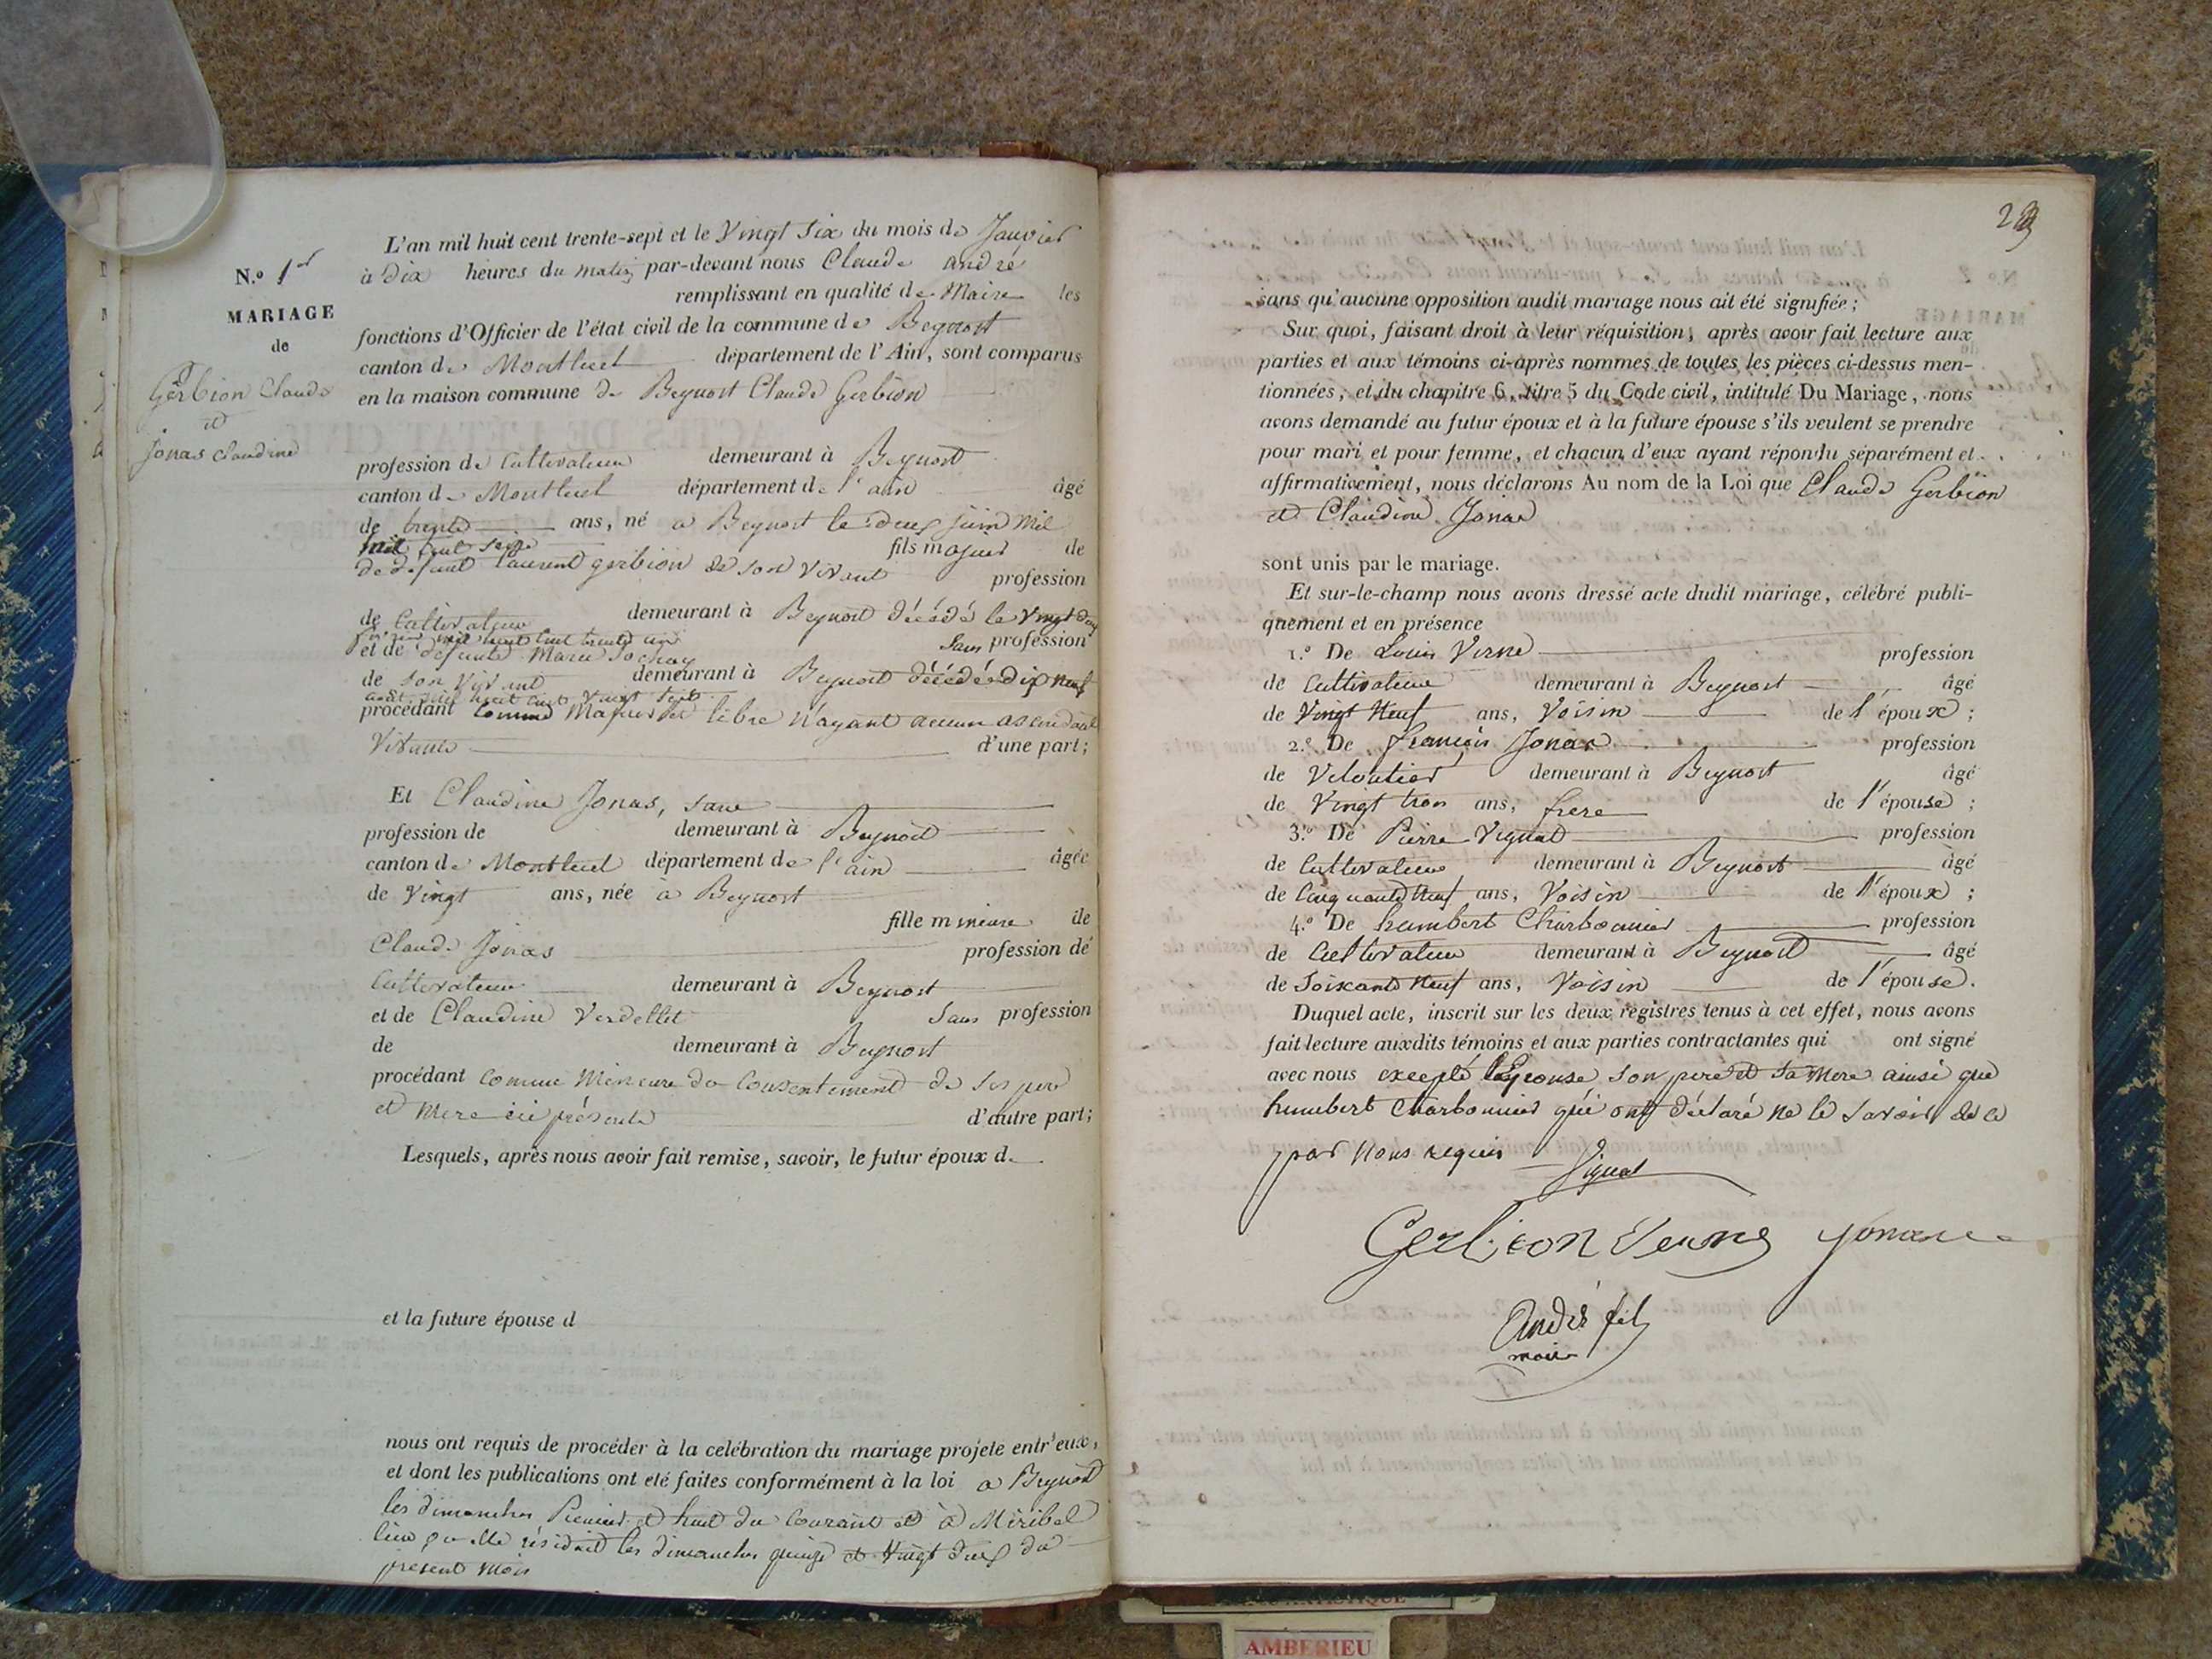 N.º 1er
MARIAGE
de
Gerbion Claude
et
Jonas Claudine
L'an mil huit cent trente-sept et le Vingt Six du mois de Janvier
à Dix heures du matin par-devant nous Claude andré
remplissant en qualité de Maire les
fonctions d'Officier de l'état civil de la commune de Beynost
canton de Montluel département de l'Ain, sont comparus
en la maison commune de Beynost Claude Gerbion
profession de Cultivateur demeurant à Beynost
canton de Montluel département de l'ain âgé
de trente ans, né a Beynost le deux juin Mil
huit cent seize fils majeur de
de defunt Laurent gerbion de son vivant profession
de Cultivateur demeurant à Beynost décédé le Vingt deux
mil huit cent trente un
et de defunte Marie Sans profession
de son vivant demeurant à Beynost décédée dix neuf
août mil huit cent Vingt Sept
procédant comme Majeur et libre N'ayant aucun ascendant
Vivants d'une part;
Et Claudine Jonas, sans
profession de demeurant à Beynost
canton de Montluel département de l'ain âgée
de Vingt ans, née à Beynost
fille mineure de
Claude Jonas profession de
Cultivateur demeurant à Beynost
et de Claudine Verdellet Sans profession
de demeurant à Beynost
procédant comme Mineure du Consentement de Ses pere
et Mere ici présents d'autre part;
Lesquels, après nous avoir fait remise, savoir, le futur époux d
et la future épouse d
nous ont requis de procéder à la celébration du mariage projete entr'eux,
et dont les publications ont été faites conformément à la loi a Beynost
les dimanches Premier et huit du Courant et à Miribel
lieu ou elle résidait les dimanches quinze et Vingt deux du
present Mois
23
sans qu'aucune opposition audit mariage nous ait été signifiée;
Sur quoi, faisant droit à leur réquisition, après avoir fait lecture aux
parties et aux témoins ci-après nommes de toutes les pièces ci-dessus men-
tionnées, et du chapitre 6, titre 5 du Code civil, intitulé Du Mariage, nous
avons demandé au futur époux et à la future épouse s'ils veulent se prendre
pour mari et pour femme, et chacun d'eux ayant répondu séparément et
affirmativement, nous déclarons Au nom de la Loi que Claude Gerbion
et Claudine Jonas
sont unis par le mariage.
Et sur-le-champ nous avons dressé acte dudit mariage, célébré publi-
quement et en présence
1.º De Louis Verne profession
de Cultivateur demeurant à Beynost âgé
de Vingt Neuf ans, Voisin de l'époux;
2.º De François Jonas profession
de Veloutier demeurant à Beynost âgé
de Vingt trois ans, frere de l'épouse;
3.º De Pierre Vignat profession
de Cultivateur demeurant à Beynost âgé
de Cinquante Neuf ans, Voisin de l'époux;
4.º De humbert Charbonnier profession
de Cultivateur demeurant à Beynost âgé
de Soixante Neuf ans, Voisin de l'épouse.
Duquel acte, inscrit sur les deux registres tenus à cet effet, nous avons
fait lecture auxdits témoins et aux parties contractantes qui ont signé
avec nous excepté l'Epouse, son pere et sa Mere ainsi que
humbert Charbonnier qui ont déclaré ne le savoir de ce
par Nous requis Vignat
Gerbion Verne Jonas
André fils
maire
AMBERIEU